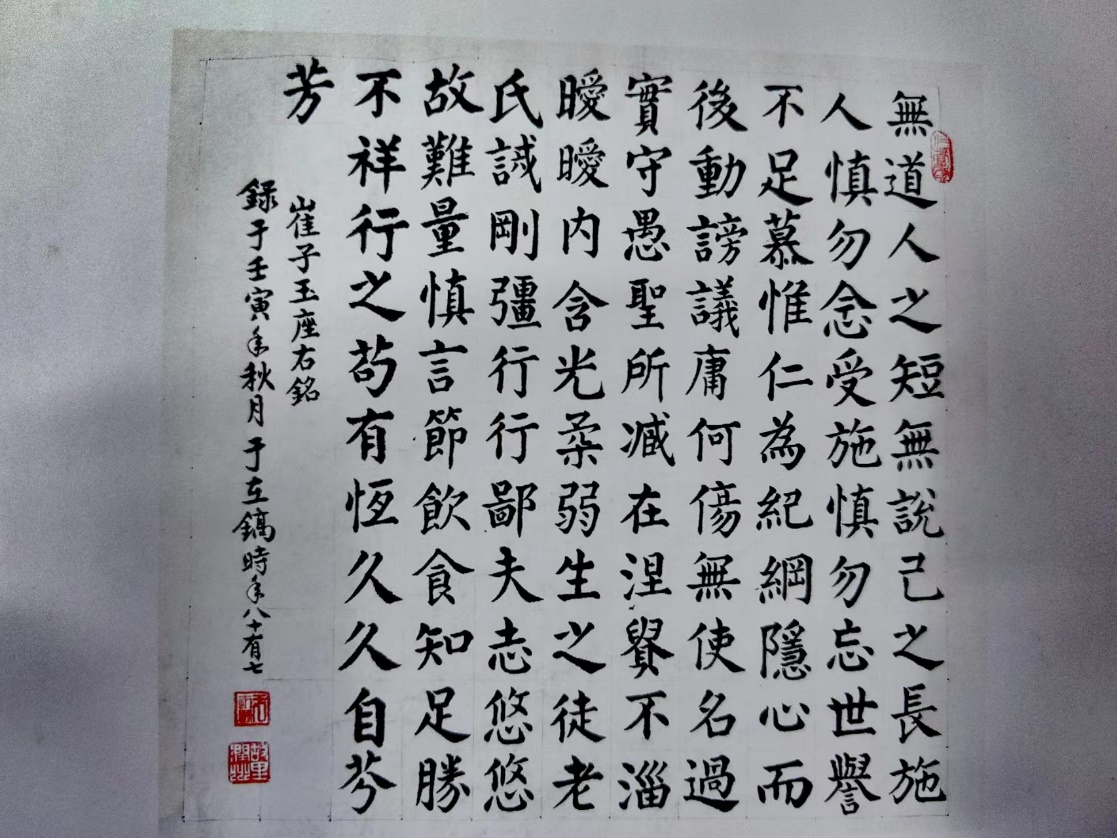 無道人之短無說己之長施
人慎勿念受施慎勿忘世譽
不足慕惟仁為紀綱隱心而
後動謗議庸何傷無使名過
實守愚聖所臧在涅貴不淄
曖曖内含光柔弱生之徒老
氏誡剛彊行行鄙夫志悠悠
故難量慎言節飲食知足勝
不祥行之苟有恆久久自芬
芳
崔子玉座右銘
録于壬寅年秋月于立鎬時年八十有七